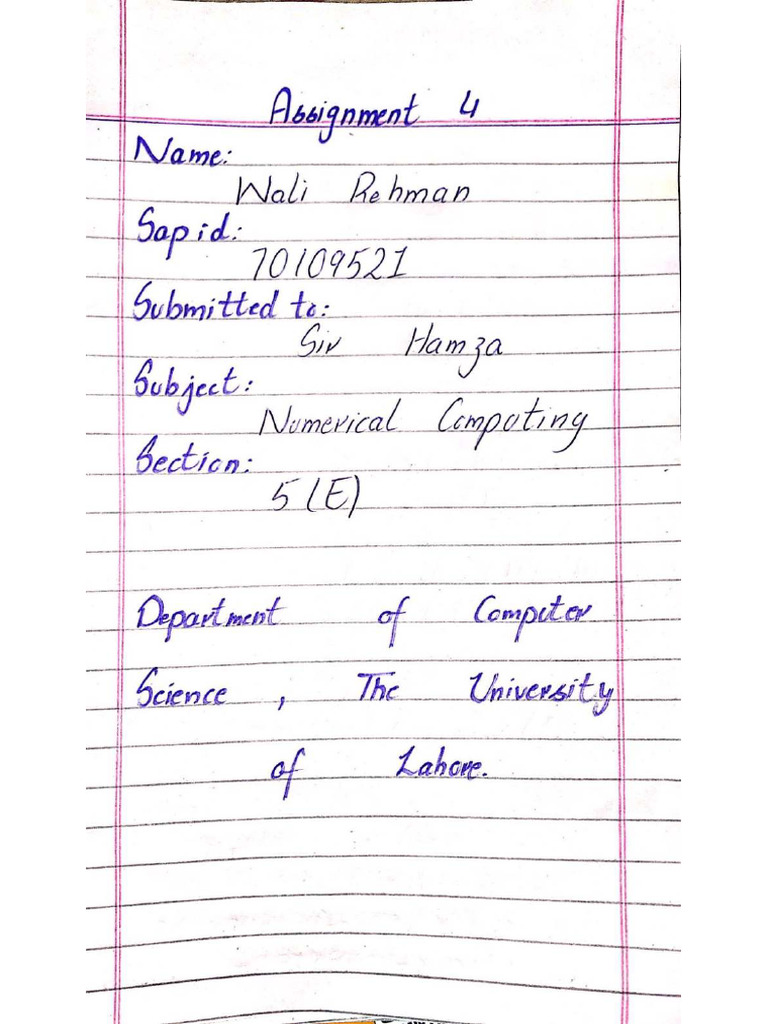 Assignment 4
Name:
Wali Rehman
Sap id:
70109521
Submitted to:
Sir Hamza
Subject:
Numerical Computing
Section:
5 (E)
Department of Computer
Science , The University
of Lahore.